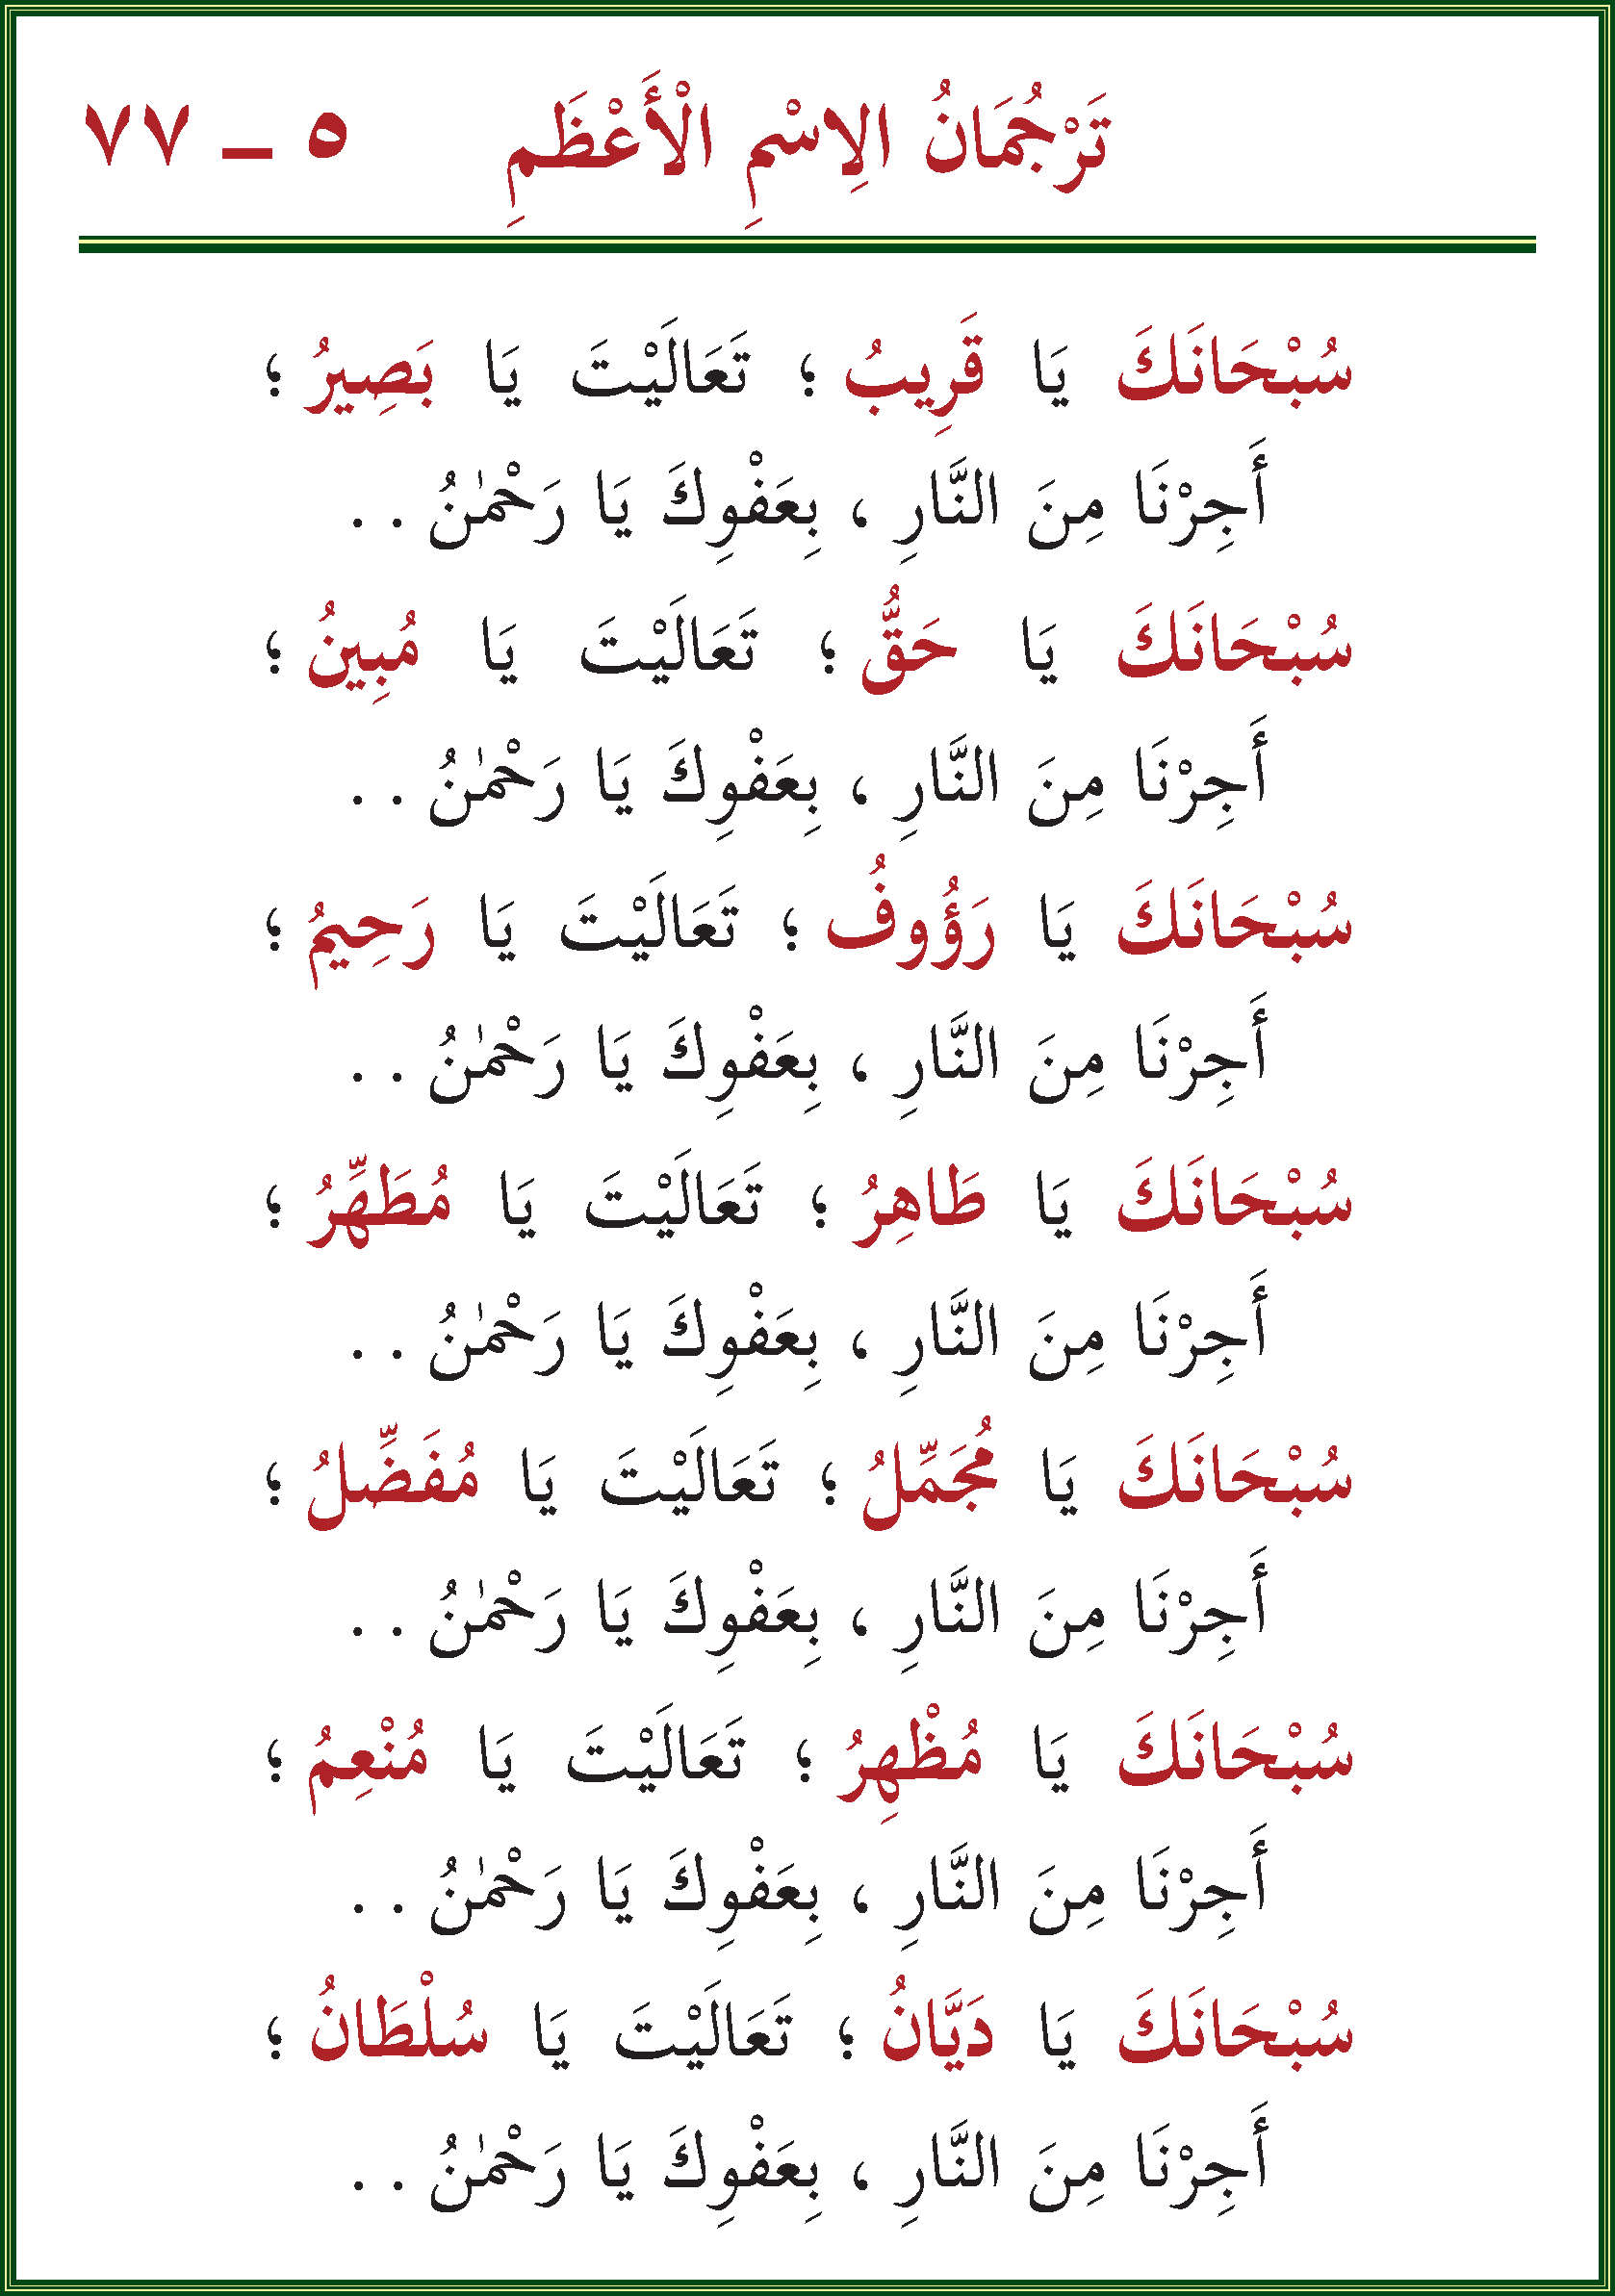 تَرْجُمَانُ الِاسْمِ الْأَعْظَمِ ٥ ـ ٧٧
سُبْحَانَكَ يَا قَرِيبُ ؛ تَعَالَيْتَ يَا بَصِيرُ ؛
أَجِرْنَا مِنَ النَّارِ ، بِعَفْوِكَ يَا رَحْمٰنُ . .
سُبْحَانَكَ يَا حَقُّ ؛ تَعَالَيْتَ يَا مُبِينُ ؛
أَجِرْنَا مِنَ النَّارِ ، بِعَفْوِكَ يَا رَحْمٰنُ . .
سُبْحَانَكَ يَا رَؤُوفُ ؛ تَعَالَيْتَ يَا رَحِيمُ ؛
أَجِرْنَا مِنَ النَّارِ ، بِعَفْوِكَ يَا رَحْمٰنُ . .
سُبْحَانَكَ يَا طَاهِرُ ؛ تَعَالَيْتَ يَا مُطَهِّرُ ؛
أَجِرْنَا مِنَ النَّارِ ، بِعَفْوِكَ يَا رَحْمٰنُ . .
سُبْحَانَكَ يَا مُجَمِّلُ ؛ تَعَالَيْتَ يَا مُفَضِّلُ ؛
أَجِرْنَا مِنَ النَّارِ ، بِعَفْوِكَ يَا رَحْمٰنُ . .
سُبْحَانَكَ يَا مُظْهِرُ ؛ تَعَالَيْتَ يَا مُنْعِمُ ؛
أَجِرْنَا مِنَ النَّارِ ، بِعَفْوِكَ يَا رَحْمٰنُ . .
سُبْحَانَكَ يَا دَيَّانُ ؛ تَعَالَيْتَ يَا سُلْطَانُ ؛
أَجِرْنَا مِنَ النَّارِ ، بِعَفْوِكَ يَا رَحْمٰنُ . .